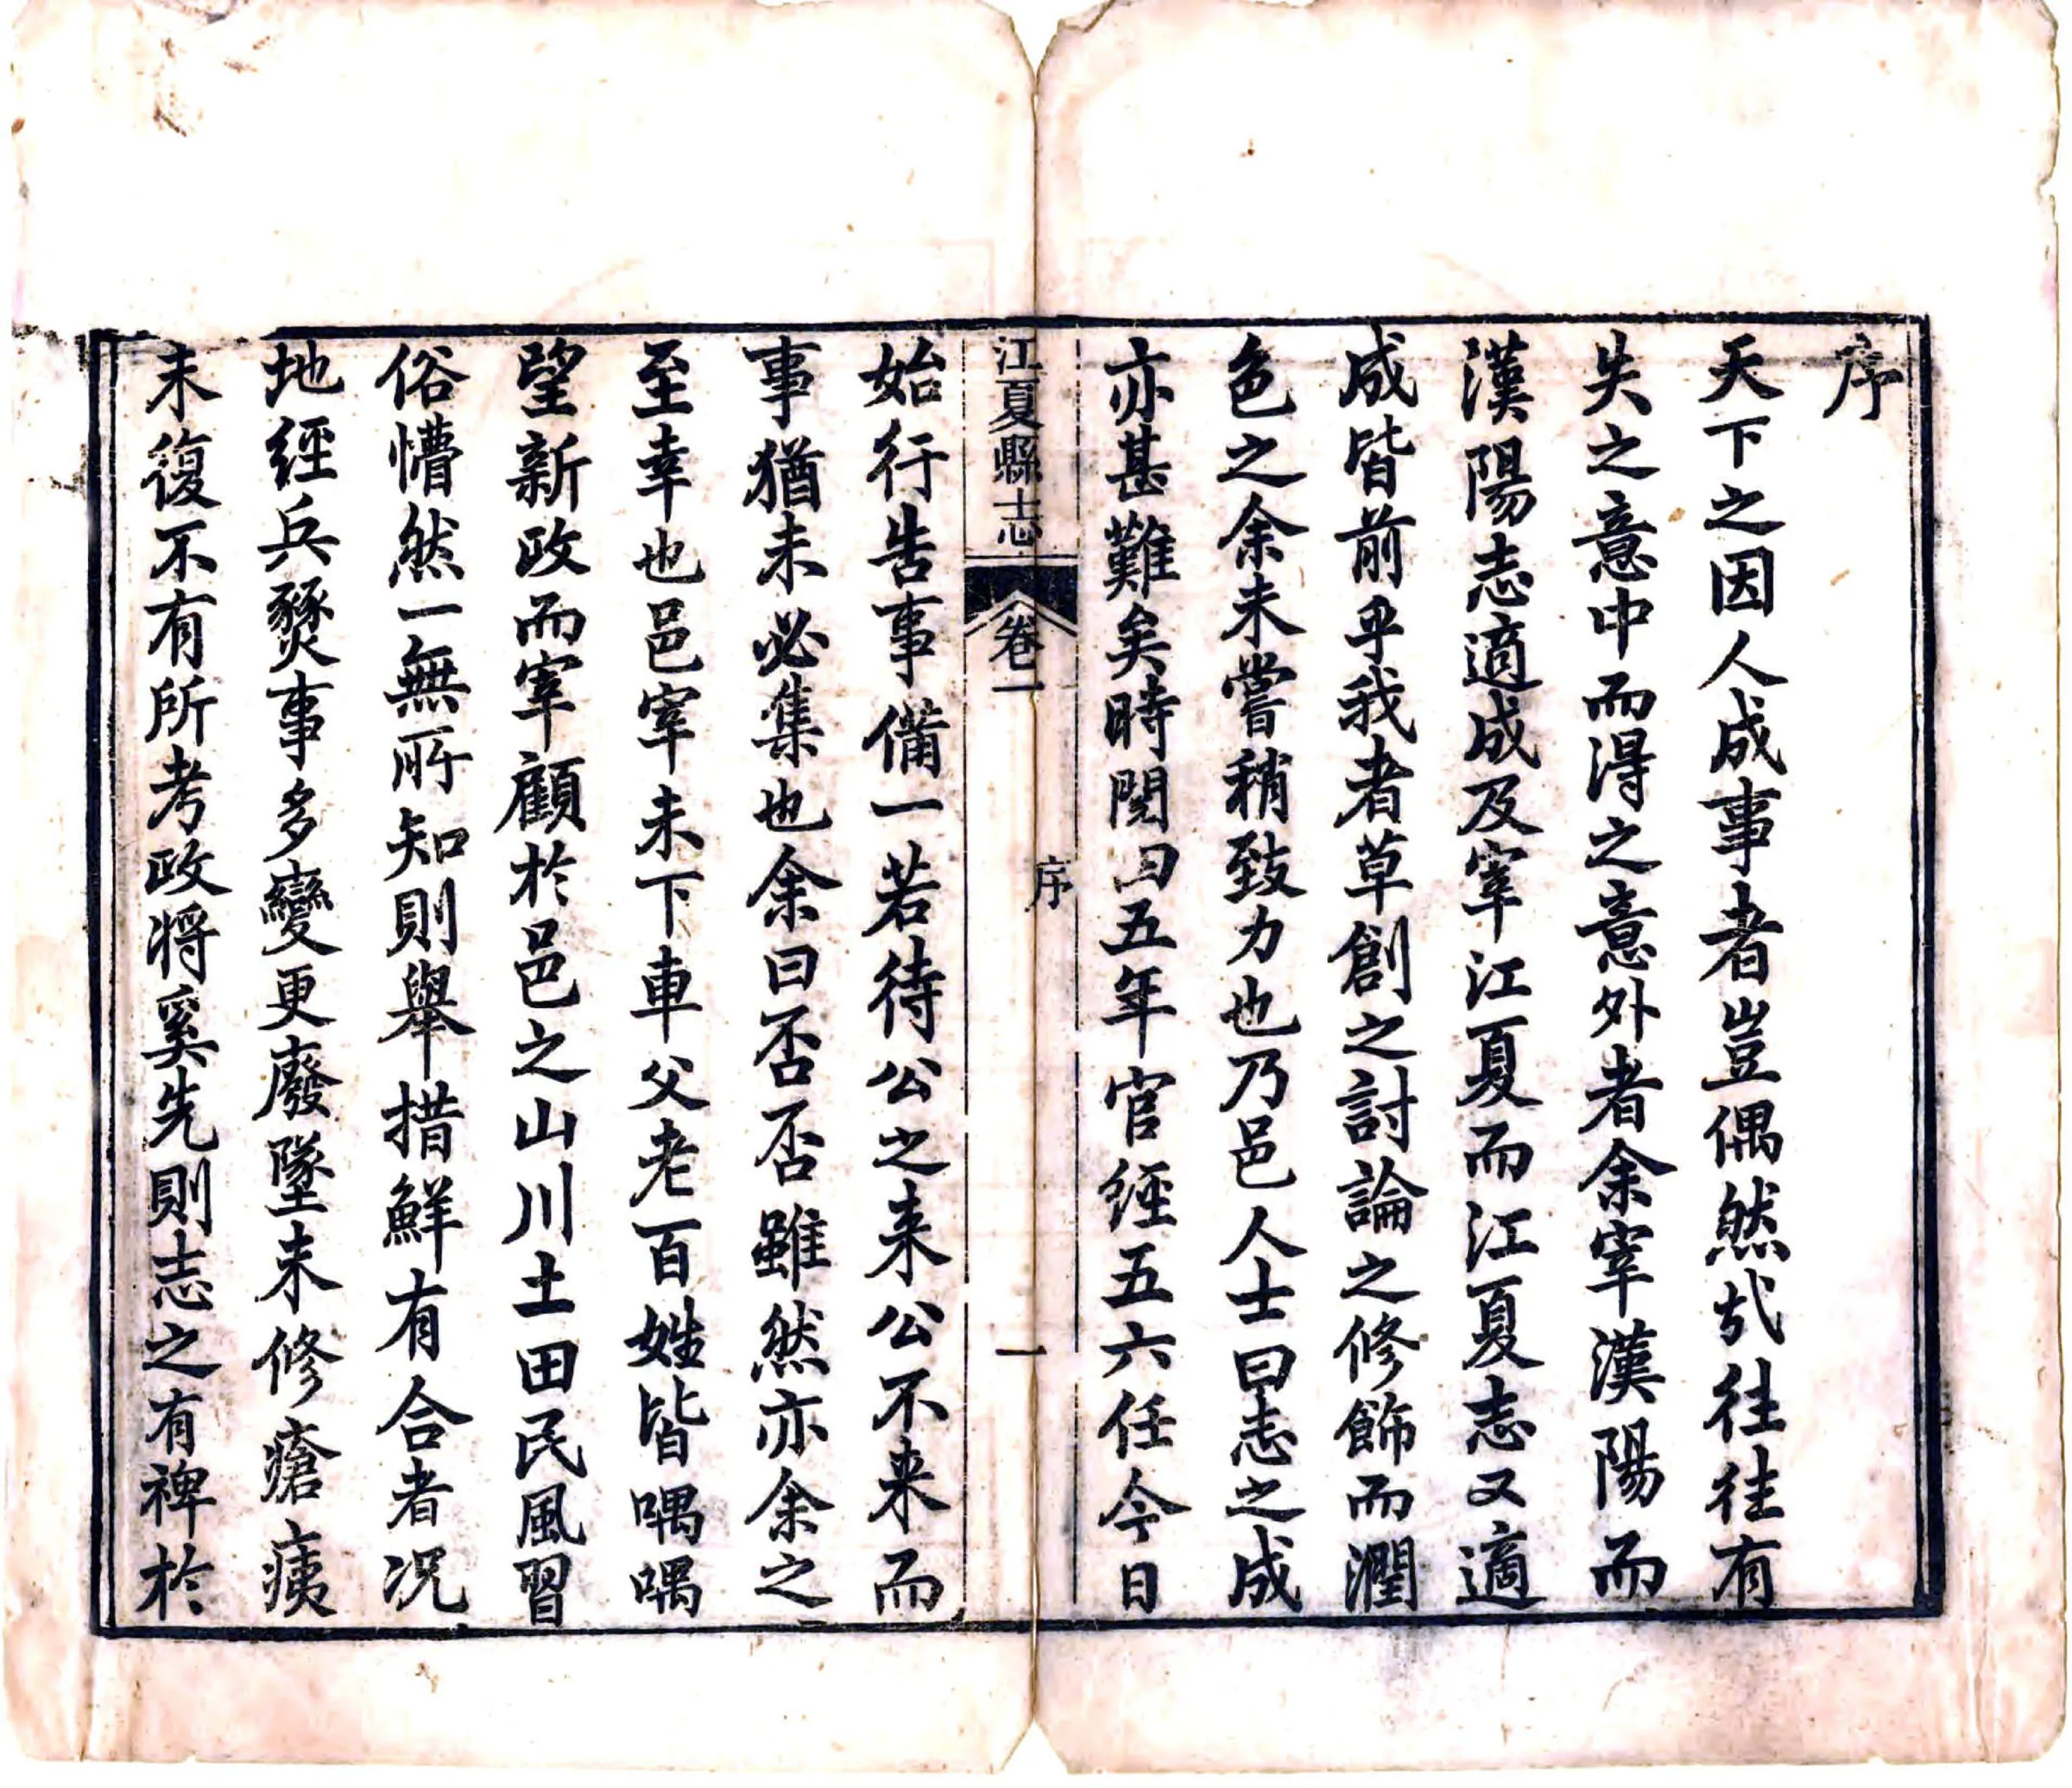 序
天下之因人成事者豈偶然哉往往有
失之意中而得之意外者余宰漢陽而
漢陽志適成及宰江夏而江夏志又適
成皆前乎我者草創之討論之修飾而潤
色之余未嘗稍致力也乃邑人士曰志之成
亦甚難矣時閱曰五年官經五六任今日
江夏縣志
卷一
序
一
始行告事備一若待公之来公不来而
事猶未必集也余曰否否雖然亦余之
至幸也邑宰未下車父老百姓皆喁喁
望新政而宰顧於邑之山川土田民風習
俗懵然一無所知則舉措鮮有合者况
地經兵燹事多變更廢墜未修瘡痍
未復不有所考政将奚先則志之有裨於